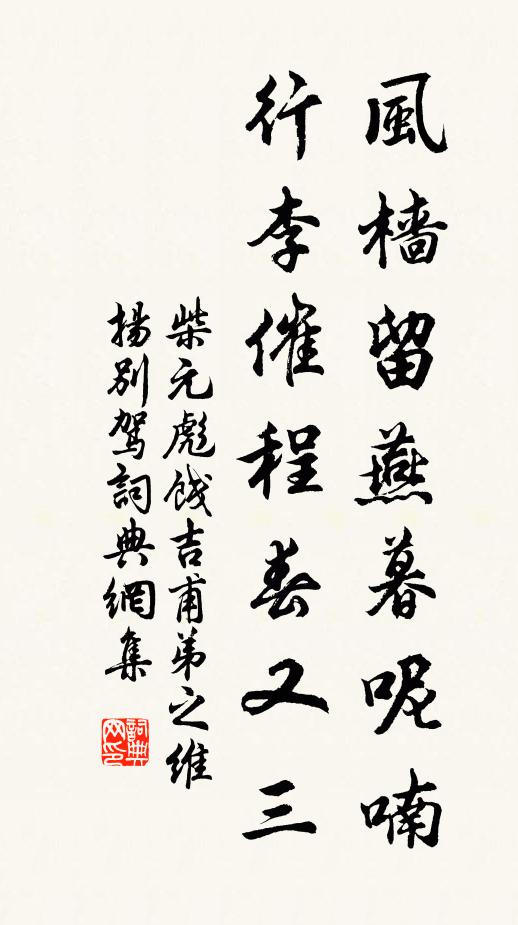 風檣留燕暮呢喃
行李催程春又三
柴元彪餞吉甫弟之維
揚別駕詞典網集
詞典
网印